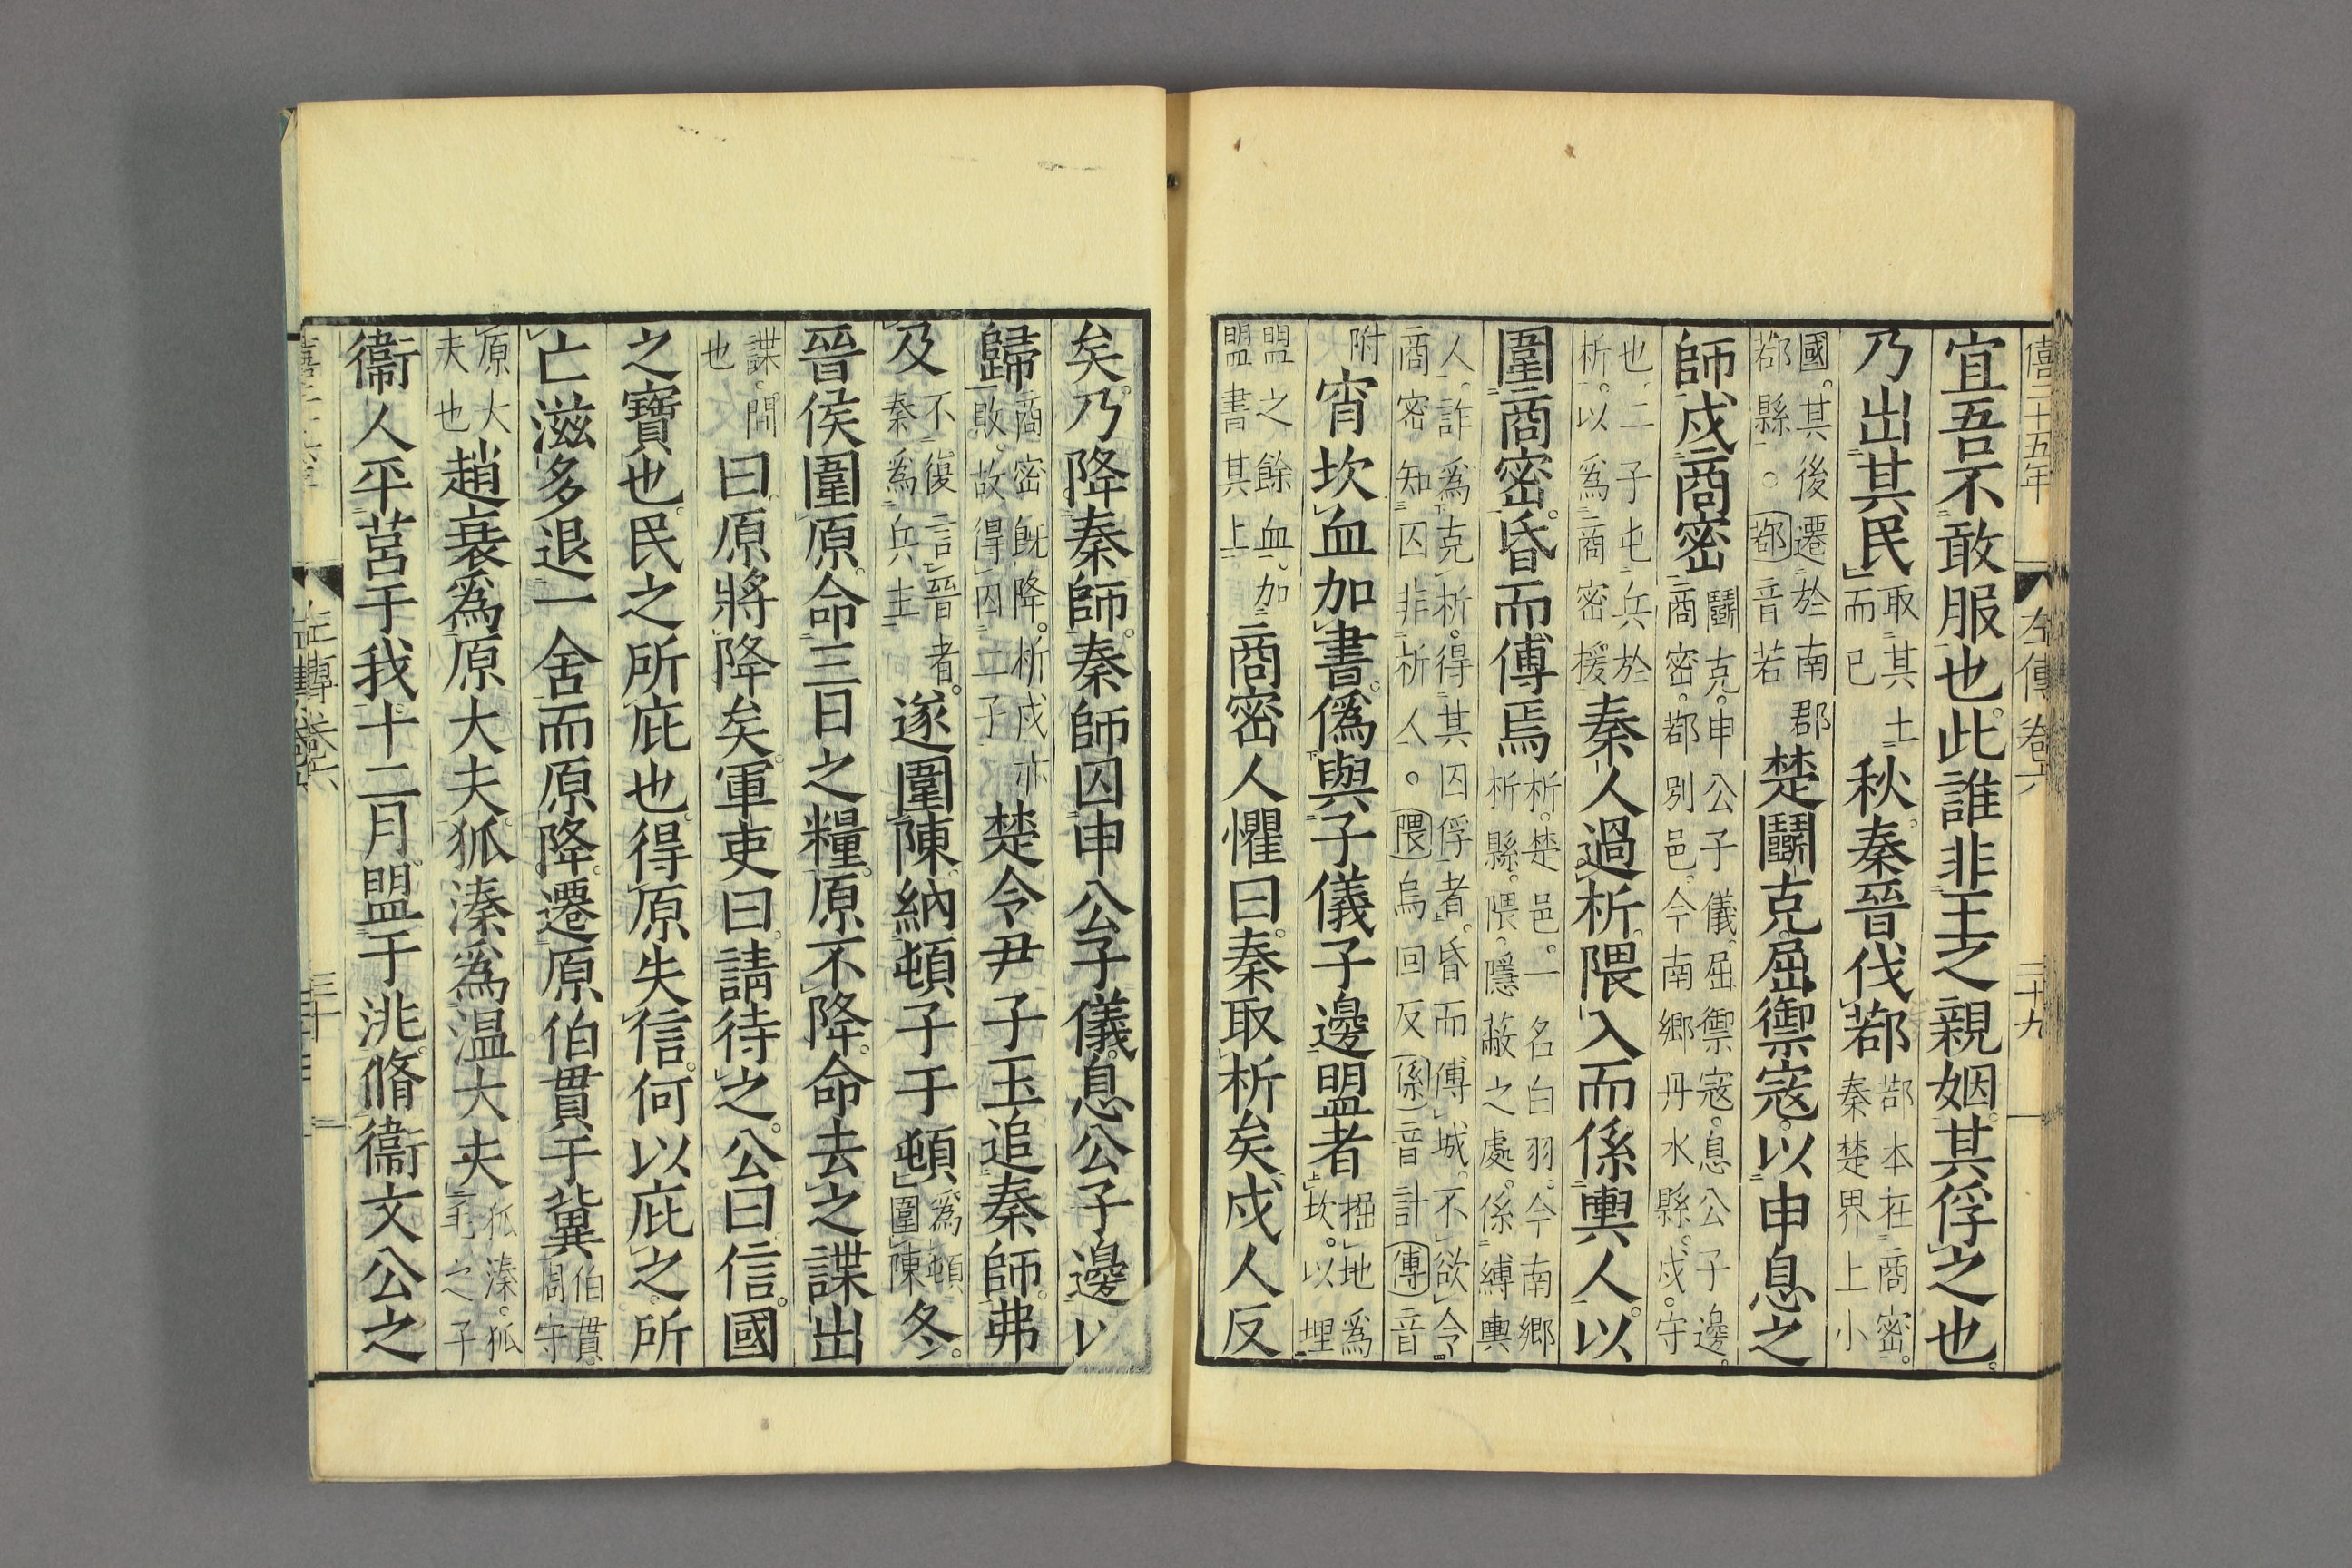 僖二十五年 左傳卷六 三十九
宜吾不敢服也。此誰非王之親姻。其俘之也。
乃出其民取其土而已秋。秦晉伐鄀鄀本在商密。秦楚界上小
國。其後遷於南郡鄀縣。○鄀音若楚鬭克。屈禦寇。以申息之
師。戍商密鬭克。申公子儀。屈禦寇。息公子邊。商密。鄀別邑。今南鄉丹水縣。戍。守
也。二子屯兵於析。以爲商密援秦人過析。隈入而係輿人。以
圍商密。昏而傅焉析。楚邑。一名白羽。今南鄉析縣。隈。隱蔽之處。係縛輿
人。詐爲克析。得其囚俘者。昏而傅城。不欲令商密知囚非析人。○隈烏回反係音計傅音
附宵坎血加書。僞與子儀子邊盟者掘地爲坎。以埋
盟之餘血。加盟書其上商密人懼曰。秦取析矣。戍人反
矣。乃降秦師。秦師囚申公子儀。息公子邊以
歸商密既降。析戍亦敗。故得囚二子楚令尹子玉追秦師。弗
及不復言晉者。秦爲兵主遂圍陳。納頓子于頓爲頓圍陳冬。
晉侯圍原。命三日之糧。原不降。命去之。諜出
諜。間也曰。原將降矣。軍吏曰。請待之。公曰。信。國
之寶也。民之所庇也。得原失信。何以庇之。所
亡滋多。退一舍而原降。遷原伯貫于冀伯貫。周守
原大夫也趙衰爲原大夫。狐溱爲温大夫狐溱。狐毛之子
衞人平莒于我。十二月。盟于洮。脩衞文公之